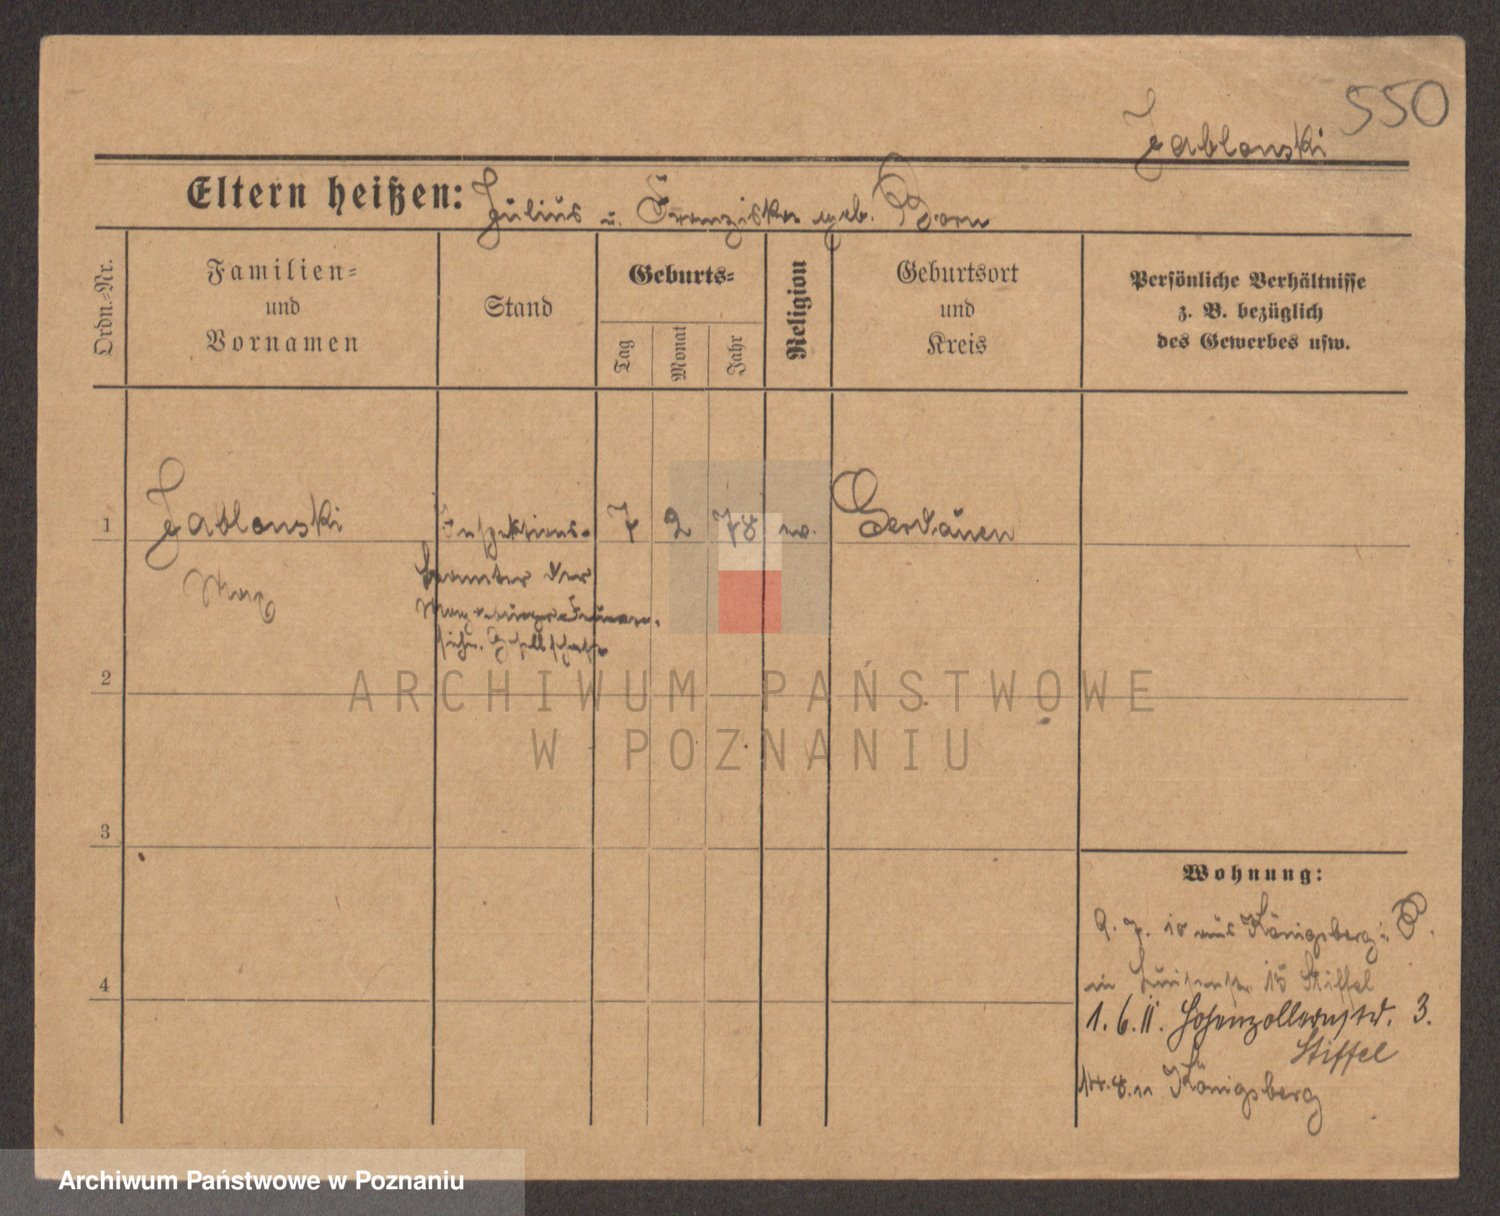 550
Jablonski
Eltern heißen: Julius u. Franziska geb. Born
Ordn.-Nr.
Familien-
und
Vornamen
Stand
Geburts-
Tag
Monat
Jahr
Religion
Geburtsort
und
Kreis
Persönliche Verhältnisse
z. B. bezüglich
des Gewerbes usw.
1
Jablonski
Max
Inspektions-
beamter der
Gesellschaft
7
2
78
Gerdauen
2
3
4
Wohnung:
9. 7. 10 aus Königsberg i. P.
in 15 Stiffel
1. 6. 11. Hohenzollernstr. 3.
Stiffel
14. 8. 11 Königsberg
ARCHIWUM PAŃSTWOWE
W POZNANIU
Archiwum Państwowe w Poznaniu